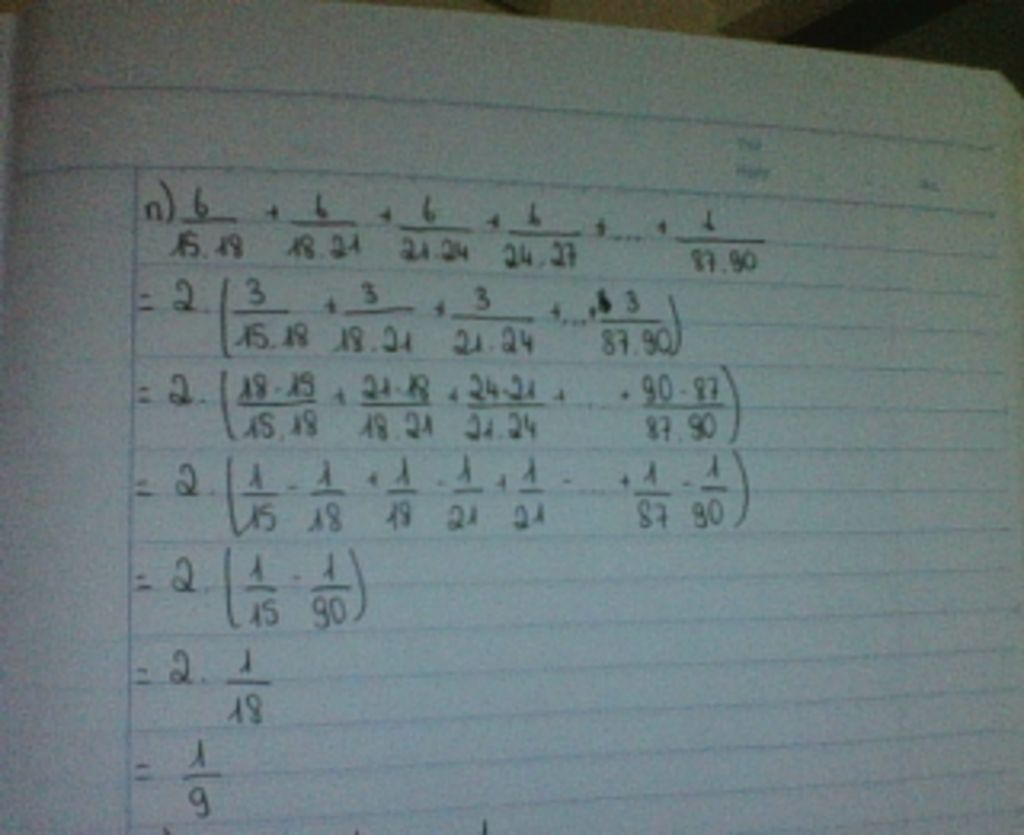 n) 6/15.18 + 6/18.21 + 6/21.24 + 6/24.27 + .... + 6/87.90
= 2. (3/15.18 + 3/18.21 + 3/21.24 + ... + 3/87.90)
= 2. (18-15/15.18 + 21-18/18.21 + 24-21/21.24 + ... + 90-87/87.90)
= 2. (1/15 - 1/18 + 1/18 - 1/21 + 1/21 - ... + 1/87 - 1/90)
= 2. (1/15 - 1/90)
= 2. 1/18
= 1/9